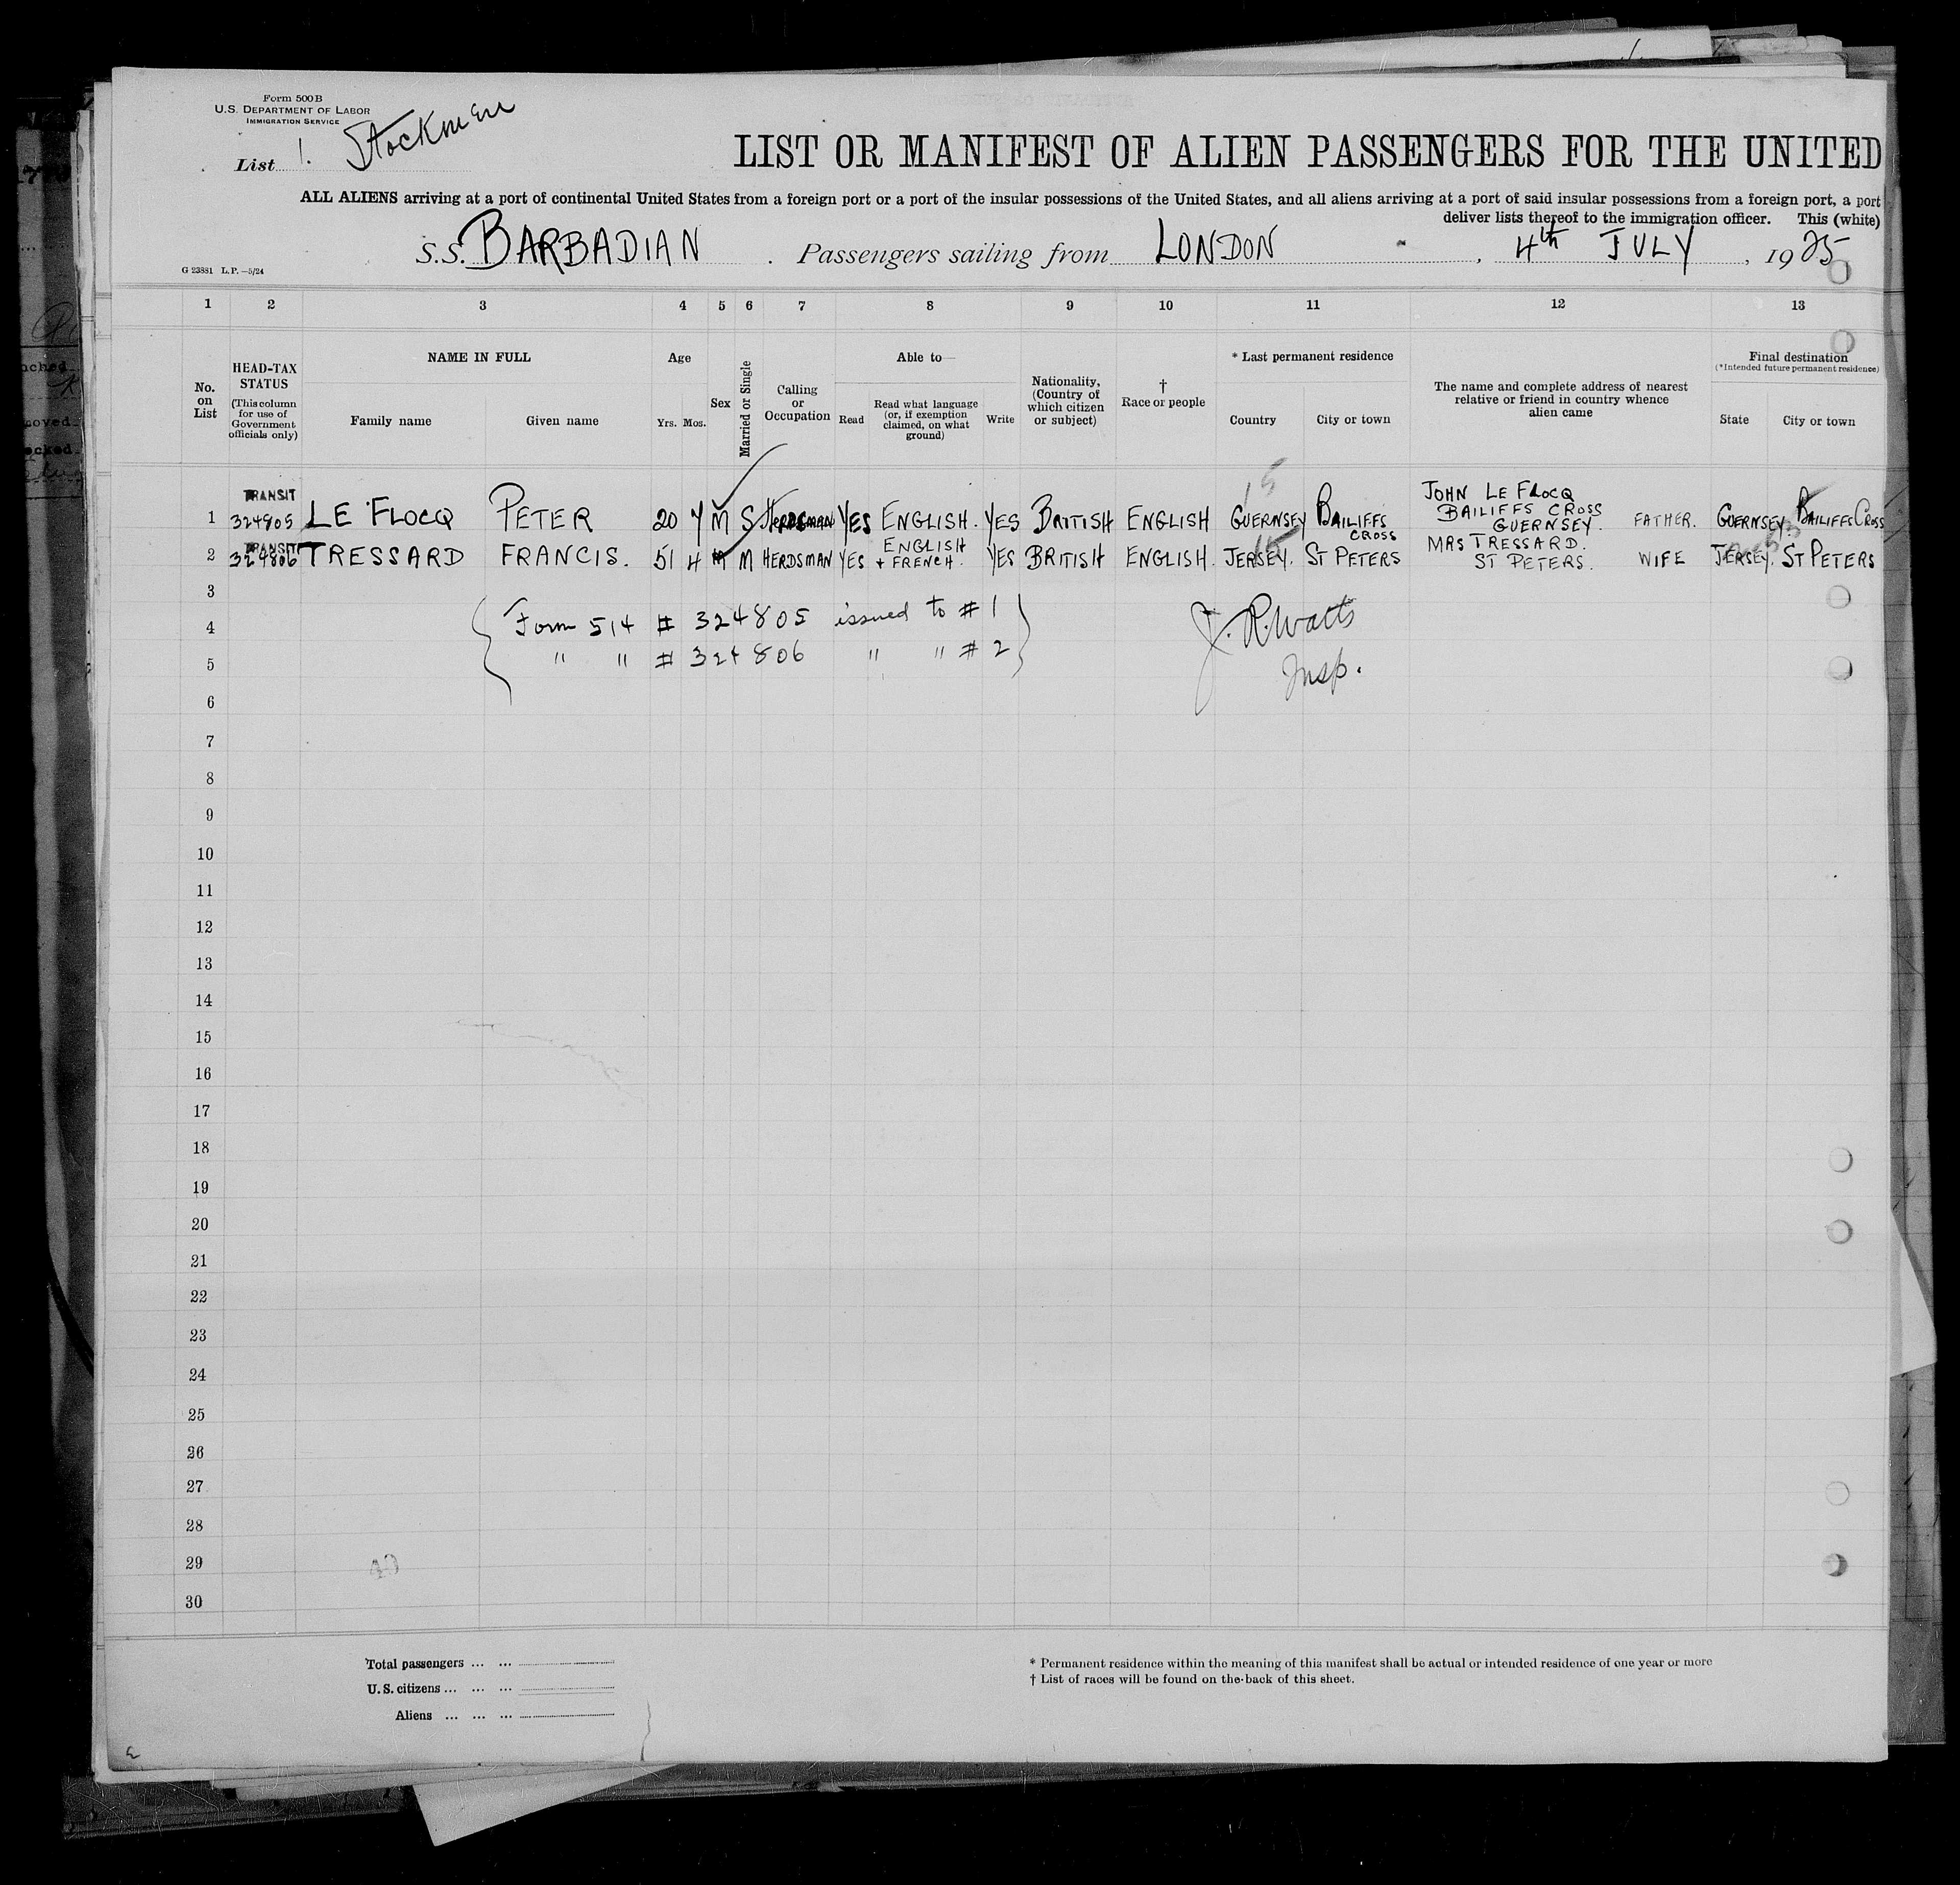 Form 500 B
U.S. DEPARTMENT OF LABOR
IMMIGRATION SERVICE
List 1. Stockmen
LIST OR MANIFEST OF ALIEN PASSENGERS FOR THE UNITED
ALL ALIENS arriving at a port of continental United States from a foreign port or a port of the insular possessions of the United States, and all aliens arriving at a port of said insular possessions from a foreign port, a port
deliver lists thereof to the immigration officer. This (white)
S.S. BARBADIAN. Passengers sailing from LONDON, 4th JULY, 1925
G 23881 L.P.—5/24
1 2 3 4 5 6 7 8 9 10 11 12 13
No. on List
HEAD-TAX STATUS
(This column for use of Government officials only)
NAME IN FULL
Family name Given name
Age
Yrs. Mos.
Sex
Married or Single
Calling or Occupation
Able to—
Read
Read what language (or, if exemption claimed, on what ground)
Write
Nationality, (Country of which citizen or subject)
† Race or people
* Last permanent residence
Country City or town
The name and complete address of nearest relative or friend in country whence alien came
Final destination
(*Intended future permanent residence)
State City or town
TRANSIT
1 324805 LE FLOCQ PETER 20 M S HERDSMAN YES ENGLISH. YES BRITISH ENGLISH GUERNSEY BAILIFFS CROSS JOHN LE FLOCQ BAILIFFS CROSS GUERNSEY. FATHER. GUERNSEY BAILIFFS CROSS
TRANSIT
2 324806 TRESSARD FRANCIS. 51 4 M M HERDSMAN YES ENGLISH + FRENCH. YES BRITISH ENGLISH. JERSEY. ST PETERS MRS TRESSARD. ST PETERS. WIFE JERSEY. ST PETERS
3
4 Form 514 # 324805 issued to # 1
5 " " # 324806 " " # 2
J. R. Watts
Insp.
6
7
8
9
10
11
12
13
14
15
16
17
18
19
20
21
22
23
24
25
26
27
28
29
30
Total passengers ... ...
U.S. citizens ... ... ...
Aliens ... ... ...
* Permanent residence within the meaning of this manifest shall be actual or intended residence of one year or more
† List of races will be found on the back of this sheet.